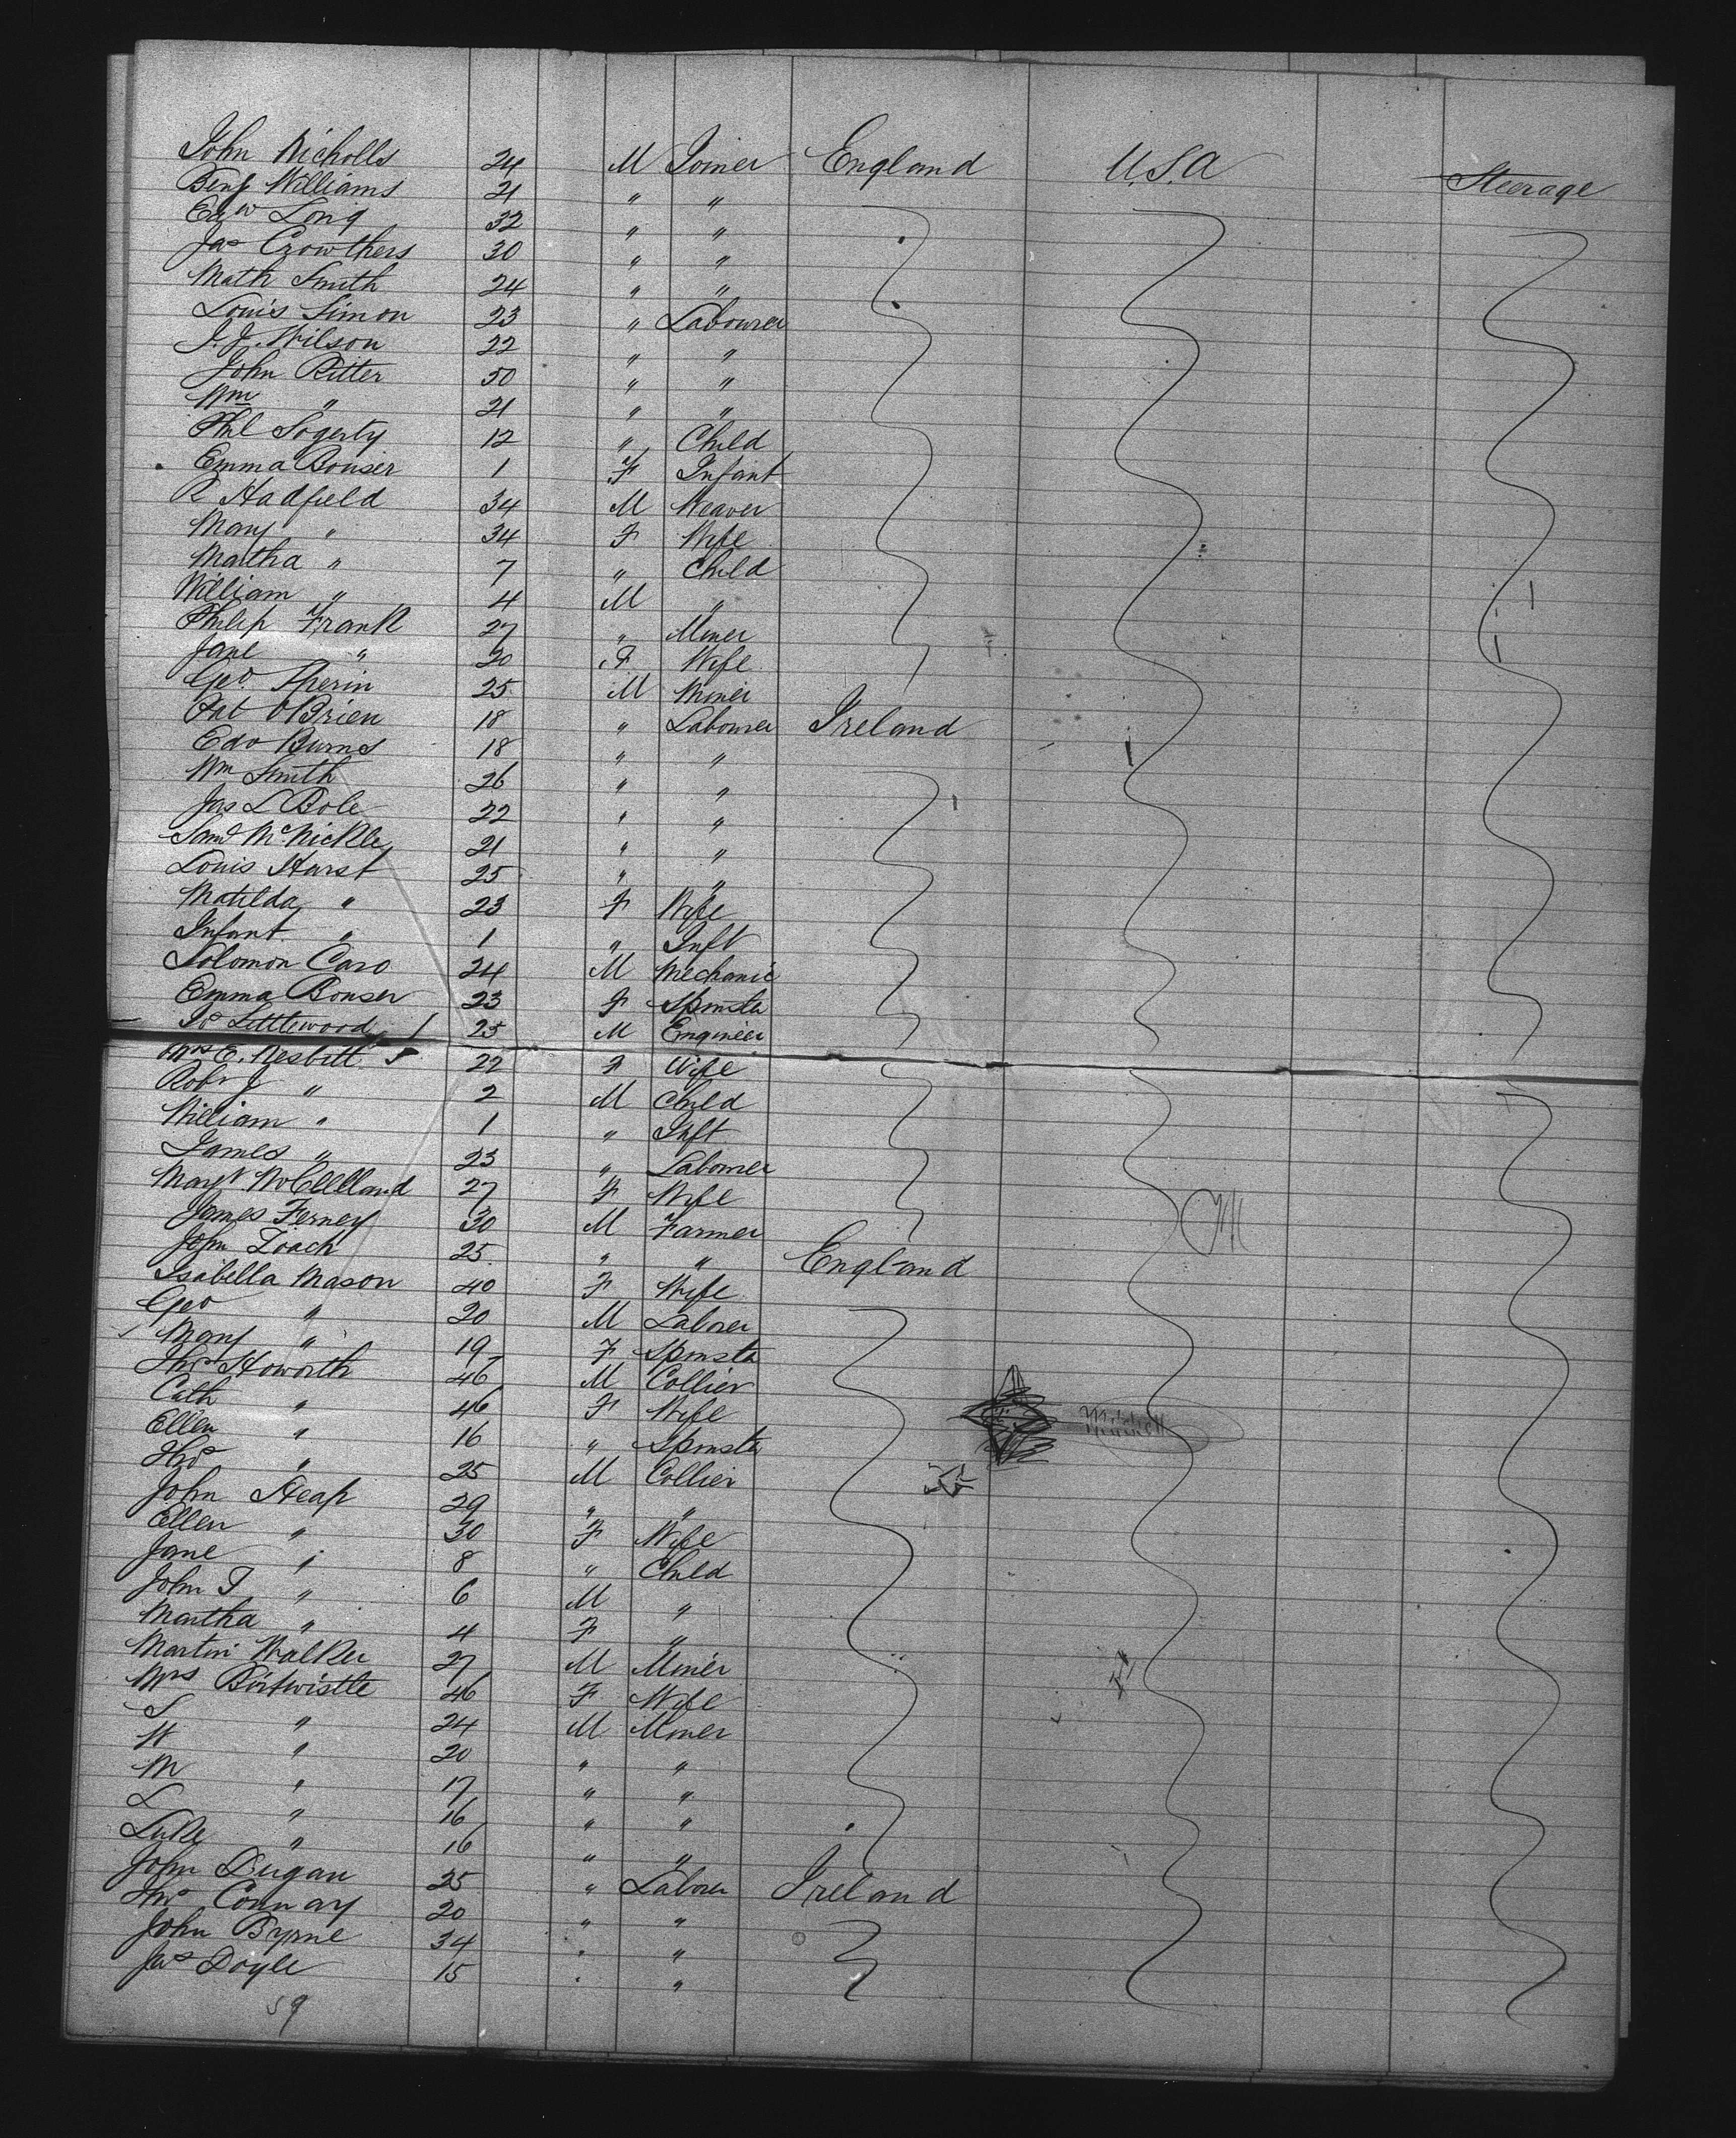 John Nicholls 24 M Joiner England U.S.A Steerage
Benj Williams 21 " "
Edw Long 32 " "
Jas Crowthers 30 " "
Math Smith 24 " "
Louis Simon 23 " Labourer
J. J. Wilson 22 " "
John Ritter 50 " "
Wm " 21 " "
Phil Fogerty 12 " Child
Emma Bonser 1 F Infant
R Hadfield 34 M Weaver
Mary " 34 F Wife
Martha " 7 " Child
William " 4 M "
Philip Frank 27 " Miner
Jane " 20 F Wife
Geo. Sperin 25 M Miner
Pat O'Brien 18 " Labourer Ireland
Edw Burns 18 " "
Wm Smith 26 " "
Jas L Bole 22 " "
Saml McNickle 21 " "
Louis Hurst 25 " "
Matilda " 23 F Wife
Infant " 1 " Inft
Solomon Caro 24 M Mechanic
Emma Bonser 23 F Spinster
Jos Littlewood 25 M Engineer
Mrs E. Nesbitt 22 F Wife
Robt J " 2 M Child
William " 1 " Inft
James " 23 " Labourer
Margt McClelland 27 F Wife
James Ferney 30 M Farmer
John Loach 25 " " England
Isabella Mason 40 F Wife
Geo " 20 M Laborer
Mary " 19 F Spinster
Thos Howorth 46 M Collier
Cath " 46 F Wife Mitchell
Ellen " 16 " Spinster
Thos " 25 M Collier
John Heap 29 " "
Ellen " 30 F Wife
Jane " 8 " Child
John T " 6 M "
Martha " 4 F "
Martin Walker 27 M Miner
Mrs Birtwistle 46 F Wife
S " 24 M Miner
W " 20 " "
M " 17 " "
L " 16 " "
Luke " 16 " "
John Dugan 25 " Laborer Ireland
Thos Connay 20 " "
John Byrne 34 " "
Jas Doyle 15 " "
59